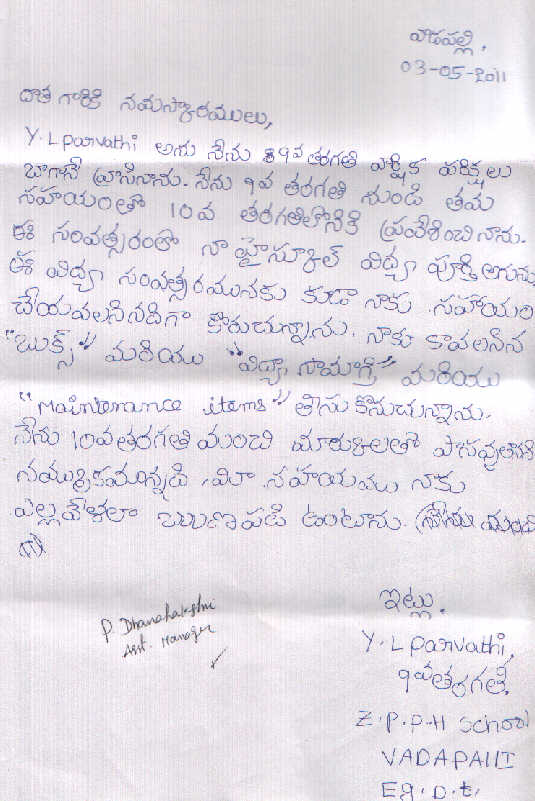 వాడపల్లి,
03-05-2011
దాత గారికి నమస్కారములు,
Y.L parvathi అను నేను 9వ తరగతి వార్షిక పరిక్షలు
బాగానే వ్రాసినాను. నేను 9వ తరగతి నుండి తమ
సహాయంతో 10వ తరగతిలోనికి ప్రవేశించినాను.
ఈ సంవత్సరంతో నా హైస్కూల్ విద్యా పూర్తి అగును
ఈ విద్యా సంవత్సరమునకు కూడా నాకు సహాయం
చేయవలసినదిగా కోరుచున్నాను. నాకు కావలసిన
"బుక్స్" మరియు "విద్యా సామాగ్రి" మరియు
"Maintenance items" తీసుకొనుచున్నాను.
నేను 10వతరగతి మంచి మార్కులతో
నమ్మకమున్నది. మీ సహాయము నాకు
ఎల్లవేళలా ఋణపడి ఉంటాను.
ఇట్లు,
P. Dhanalakshmi
Asst. Manager
Y.L parvathi,
9వతరగతి.
Z.P.P.H School
VADAPALLI
E.g.D.t.